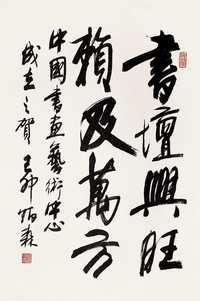 書壇興旺
賴及萬方
中國書画藝術中心
成立之賀 己卯 炳森